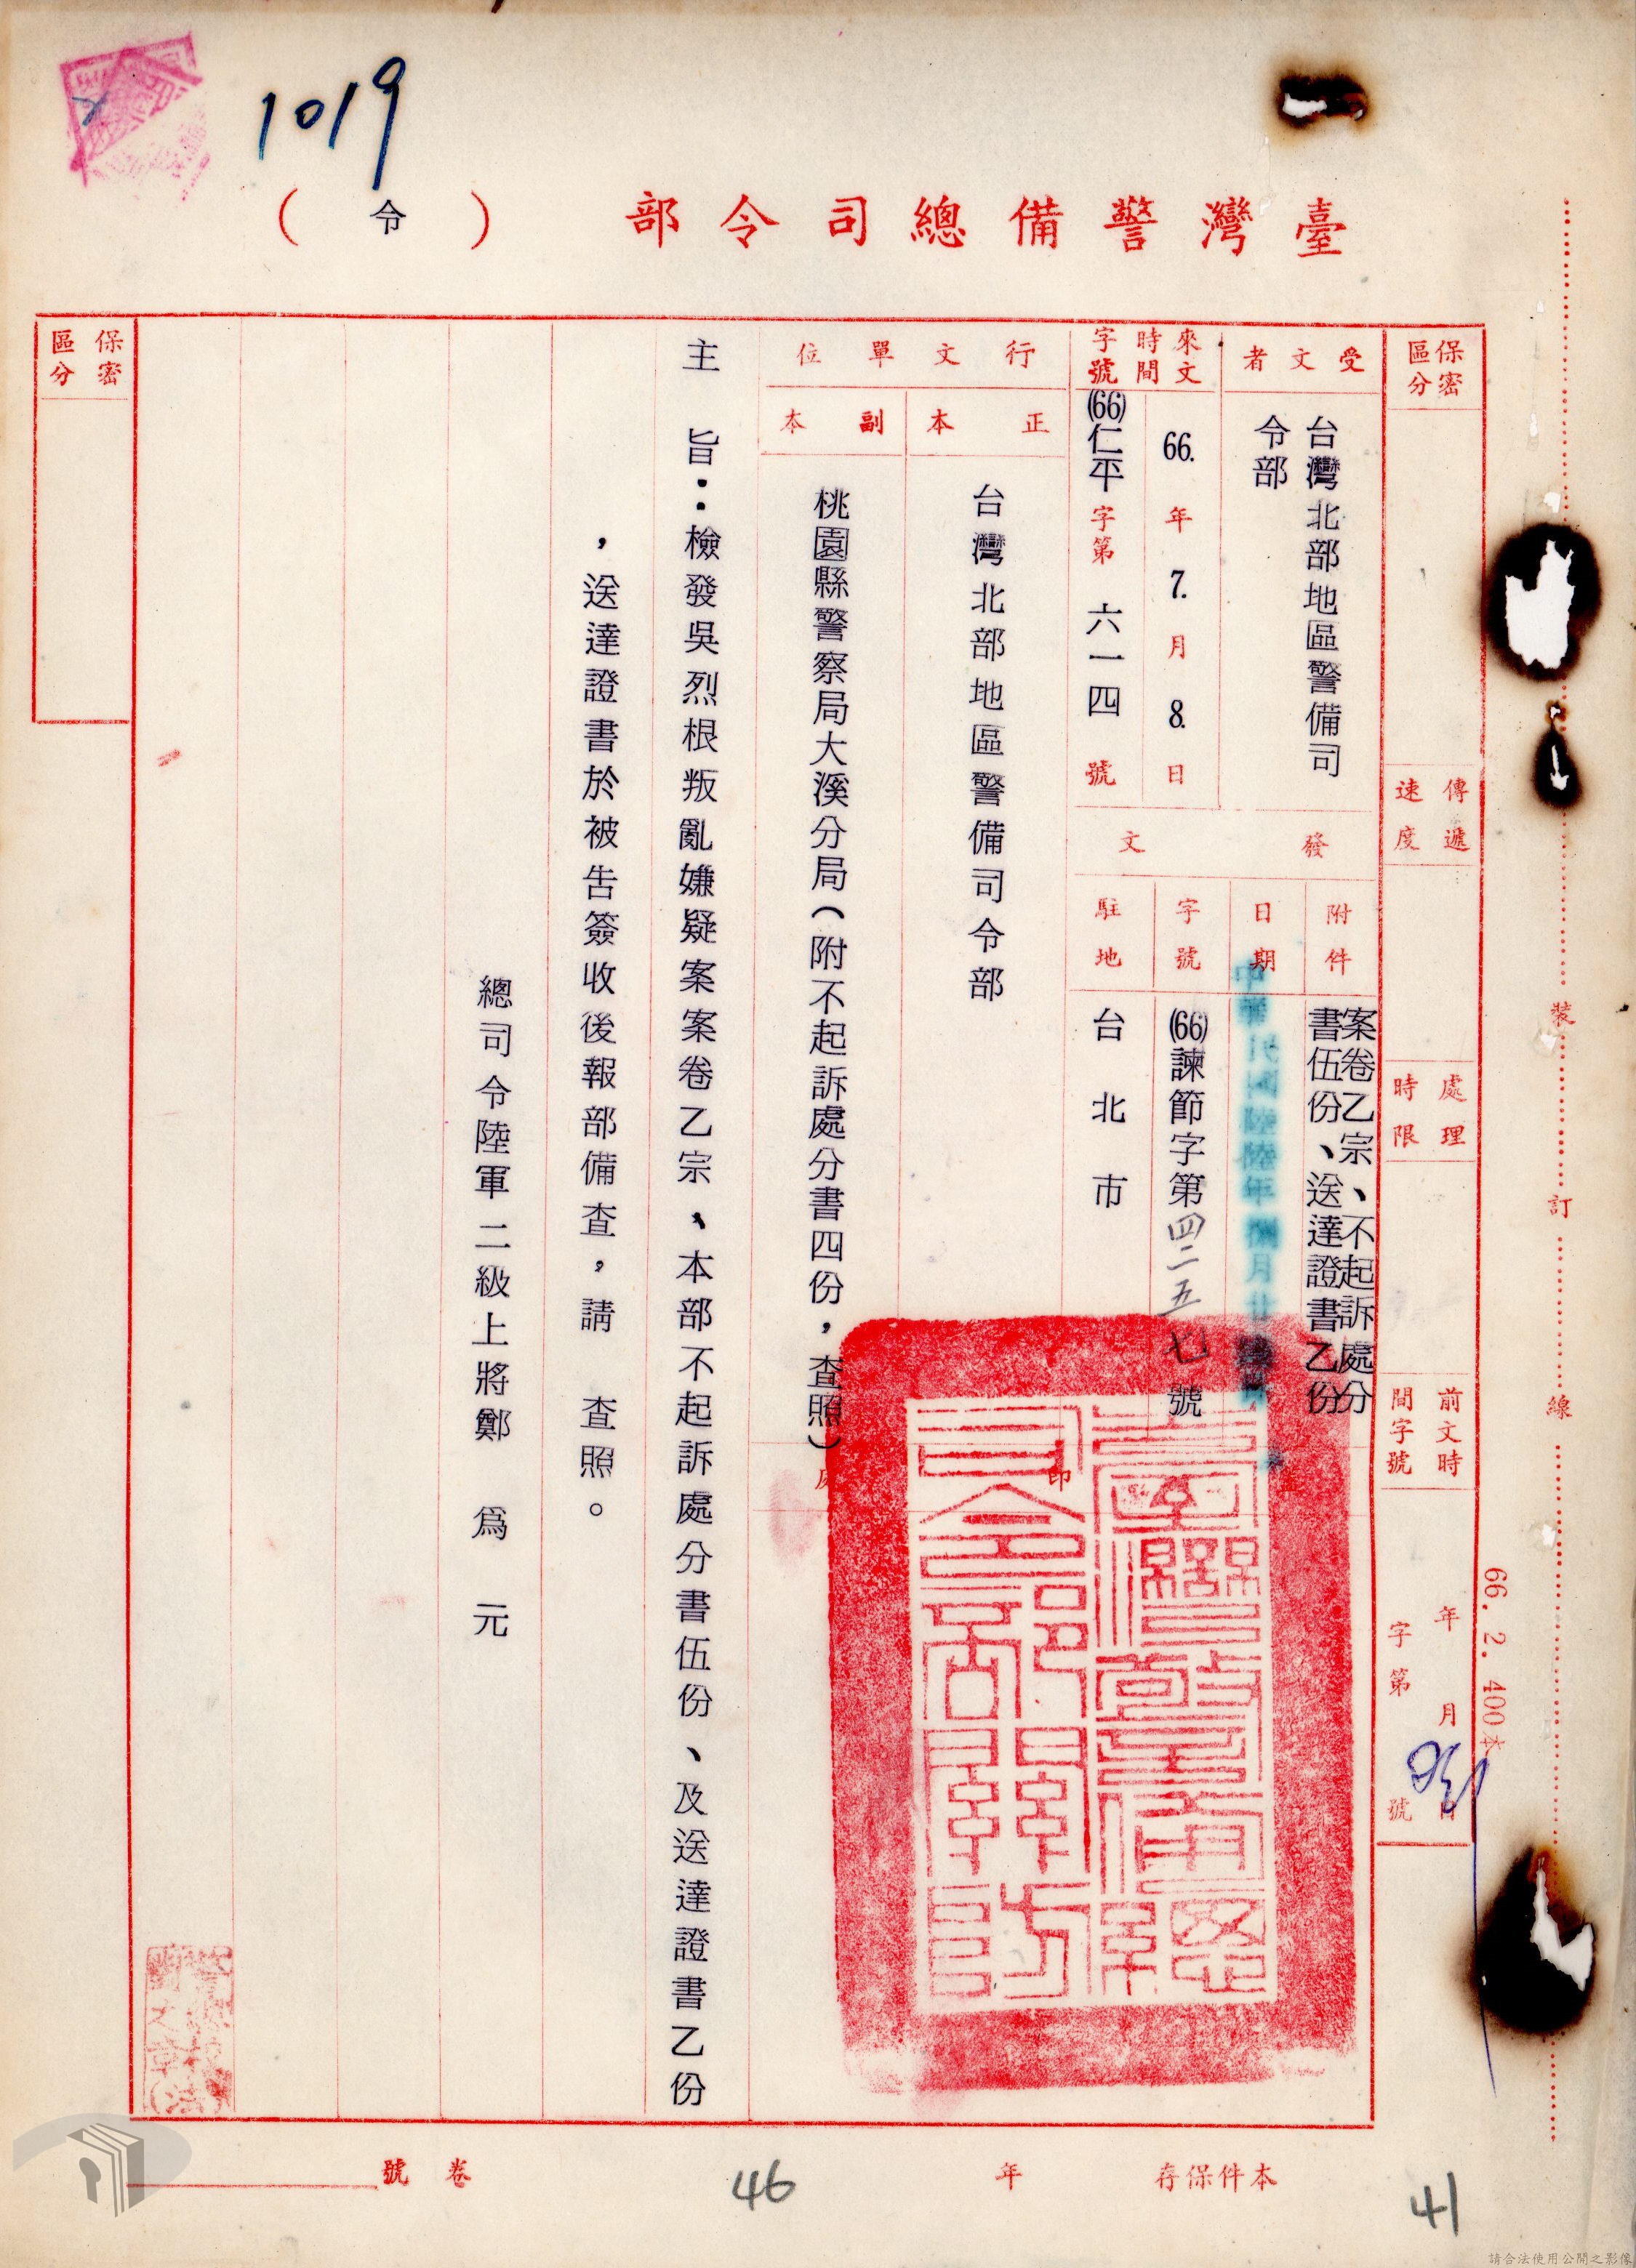 1019
臺灣警備總司令部（令）
保密區分
傳遞速度
處理時限
前文時間字號
年 月 日
字第 號
受文者
台灣北部地區警備司
令部
來文時間字號
66.年7.月8.日
(66)仁平字第六一四號
發文
附件
案卷乙宗、不起訴處分
書伍份、送達證書乙份
日期
中華民國陸陸年捌月廿
字號
(66)諫節字第四二五七號
駐地
台北市
行文單位
正本
台灣北部地區警備司令部
副本
桃園縣警察局大溪分局(附不起訴處分書四份，查照)
印
主旨：檢發吳烈根叛亂嫌疑案案卷乙宗、本部不起訴處分書伍份、及送達證書乙份
，送達證書於被告簽收後報部備查，請 查照。
總司令陸軍二級上將鄭 為 元
臺灣警備總司令部關防
保密區分
裝訂線
66. 2. 400本
本件保存 年
卷號
46
41
請合法使用公開之影像